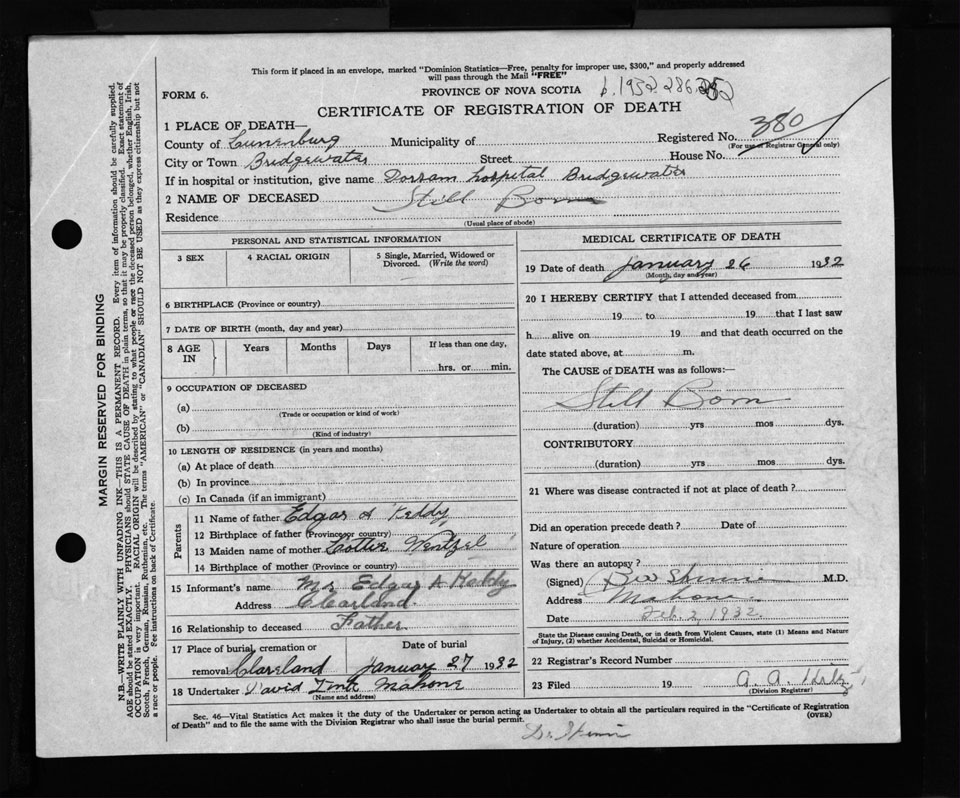 This form if placed in an envelope, marked "Dominion Statistics—Free, penalty for improper use, $300," and properly addressed
will pass through the Mail "FREE"
FORM 6.
PROVINCE OF NOVA SCOTIA
CERTIFICATE OF REGISTRATION OF DEATH
1 PLACE OF DEATH—
Registered No. 380
(For use of Registrar General only)
County of Lunenburg Municipality of
City or Town Bridgewater Street House No.
If in hospital or institution, give name Dorsam hospital Bridgewater
2 NAME OF DECEASED Still Born
Residence
(Usual place of abode)
PERSONAL AND STATISTICAL INFORMATION
3 SEX 4 RACIAL ORIGIN 5 Single, Married, Widowed or
Divorced. (Write the word)
6 BIRTHPLACE (Province or country)
7 DATE OF BIRTH (month, day and year)
8 AGE IN Years Months Days If less than one day,
hrs. or min.
9 OCCUPATION OF DECEASED
(a)
(Trade or occupation or kind of work)
(b)
(Kind of industry)
10 LENGTH OF RESIDENCE (in years and months)
(a) At place of death
(b) In province
(c) In Canada (if an immigrant)
Parents
11 Name of father Edgar A Keddy
12 Birthplace of father (Province or country)
13 Maiden name of mother Lottie Wentzel
14 Birthplace of mother (Province or country)
15 Informant's name Mr Edgar A Keddy
Address Clearland
16 Relationship to deceased Father
17 Place of burial, cremation or Date of burial
removal Clareland January 27 1932
18 Undertaker David Mahone
(Name and address)
MEDICAL CERTIFICATE OF DEATH
19 Date of death January 26 1932
(Month, day and year)
20 I HEREBY CERTIFY that I attended deceased from
19 to 19 that I last saw
h alive on 19 and that death occurred on the
date stated above, at m.
The CAUSE of DEATH was as follows:—
Still Born
(duration) yrs mos dys.
CONTRIBUTORY
(duration) yrs mos dys.
21 Where was disease contracted if not at place of death?
Did an operation precede death? Date of
Nature of operation
Was there an autopsy?
(Signed) M.D.
Address Mahone
Date Feb. 2, 1932.
State the Disease causing Death, or in death from Violent Causes, state (1) Means and Nature
of Injury, (2) whether Accidental, Suicidal or Homicidal.
22 Registrar's Record Number
23 Filed 19 A. A.
(Division Registrar)
Sec. 46—Vital Statistics Act makes it the duty of the Undertaker or person acting as Undertaker to obtain all the particulars required in the "Certificate of Registration
of Death" and to file the same with the Division Registrar who shall issue the burial permit.
(OVER)
MARGIN RESERVED FOR BINDING
N.B.—WRITE PLAINLY WITH UNFADING INK—THIS IS A PERMANENT RECORD. Every item of information should be carefully supplied.
AGE should be stated EXACTLY. PHYSICIANS should STATE CAUSE OF DEATH in plain terms, so that it may be properly classified. Exact statement of
OCCUPATION is very important. RACIAL ORIGIN will be described by stating to what people or race the deceased person belonged, whether English, Irish,
Scotch, French, German, Russian, Ruthenian, etc. The terms "AMERICAN" or "CANADIAN" SHOULD NOT BE USED as they express citizenship but not
a race or people. See instructions on back of Certificate.